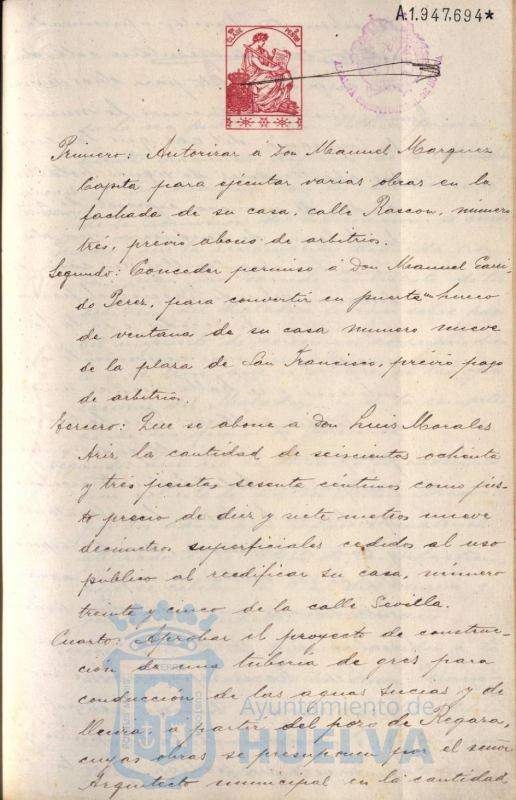 A.1.947.694*
Primero: Autorizar á Don Manuel Marquez
Capita para ejecutar varias obras en la
fachada de su casa, calle Rascon, número
tres, previo abono de arbitrios.
Segundo: Conceder permiso á Don Manuel Garri-
do Perez, para convertir en puerta un hueco
de ventana de su casa numero nueve
de la plaza de San Francisco, previo pago
de arbitrios.
Tercero: Que se abone a Don Luis Morales
la cantidad de seiscientas ochenta
y tres pesetas sesenta céntimos como jus-
to precio de diez y siete metros nueve
decimetros superficiales cedidos al uso
público al reedificar su casa, número
treinta y cinco de la calle Sevilla.
Cuarto: Aprobar el proyecto de construc-
ción de una tubería de gres para
conducción de las aguas sucias y de
lluvia, a partir del pozo de Regara,
cuyas obras se presuponen por el señor
Arquitecto municipal en la cantidad
Ayuntamiento de
HUELVA